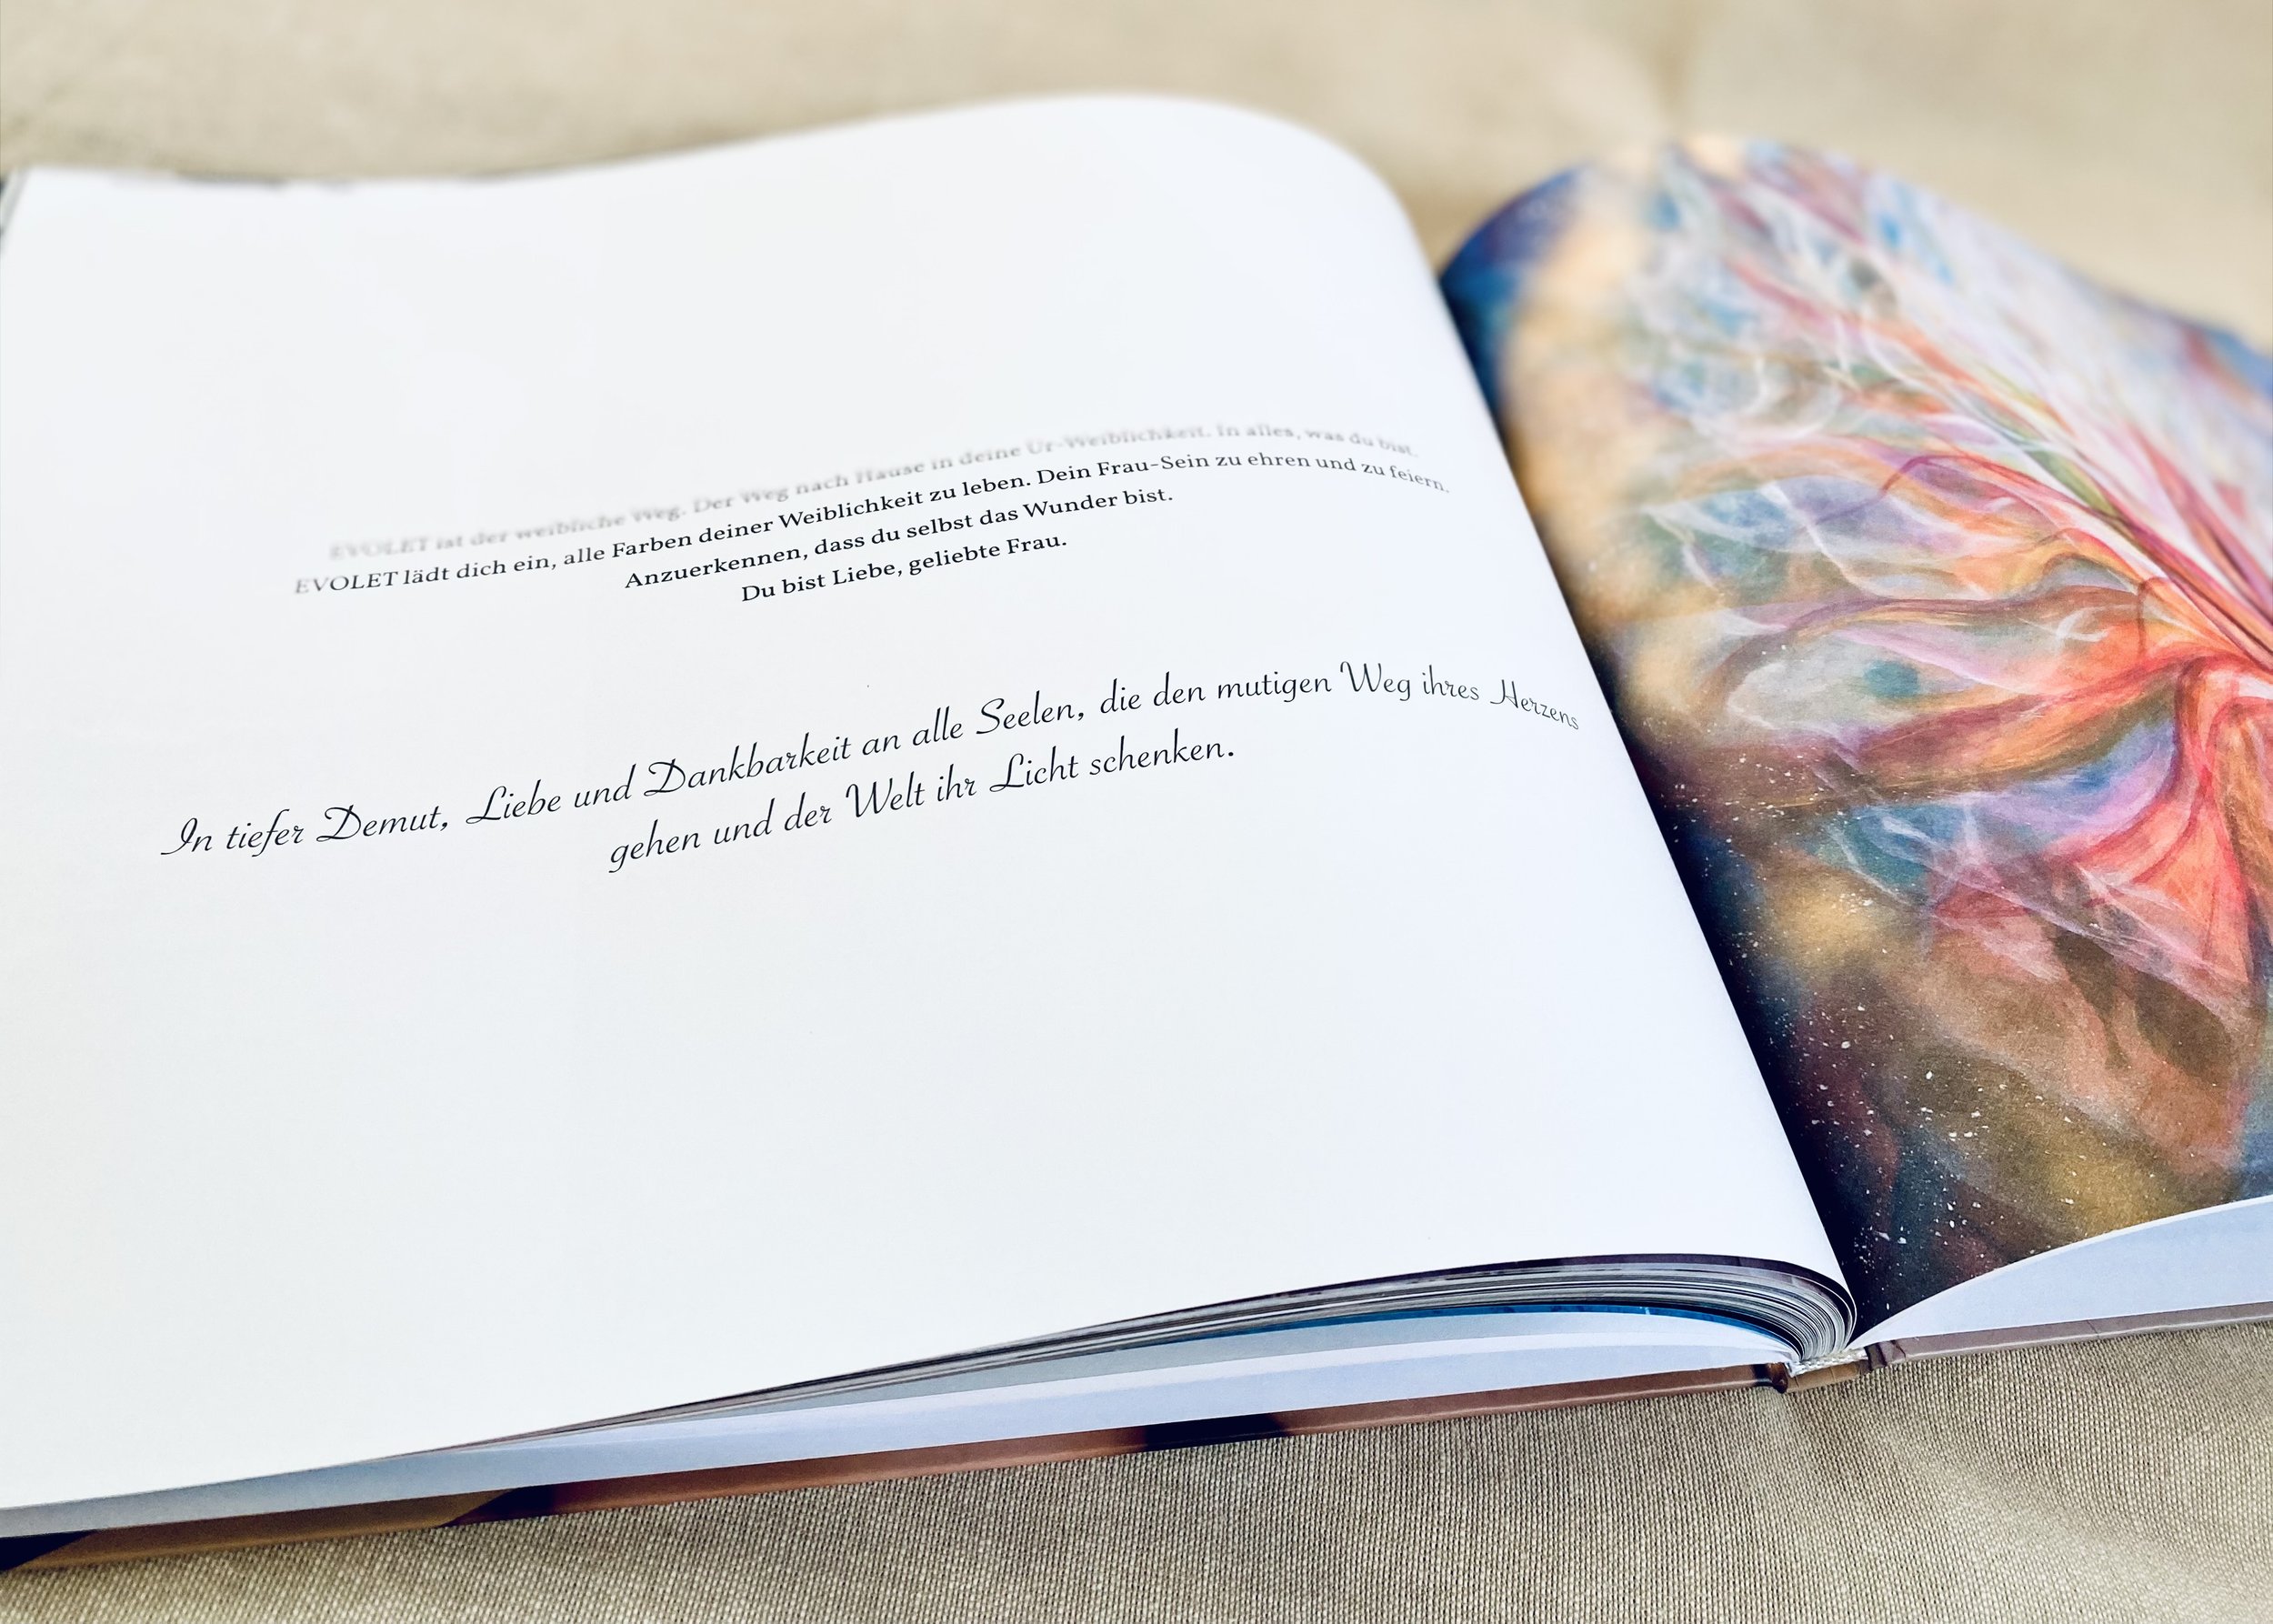 EVOLET ist der weibliche Weg. Der Weg nach Hause in deine Ur-Weiblichkeit. In alles, was du bist.
EVOLET lädt dich ein, alle Farben deiner Weiblichkeit zu leben. Dein Frau-Sein zu ehren und zu feiern.
Anzuerkennen, dass du selbst das Wunder bist.
Du bist Liebe, geliebte Frau.
In tiefer Demut, Liebe und Dankbarkeit an alle Seelen, die den mutigen Weg ihres Herzens
gehen und der Welt ihr Licht schenken.